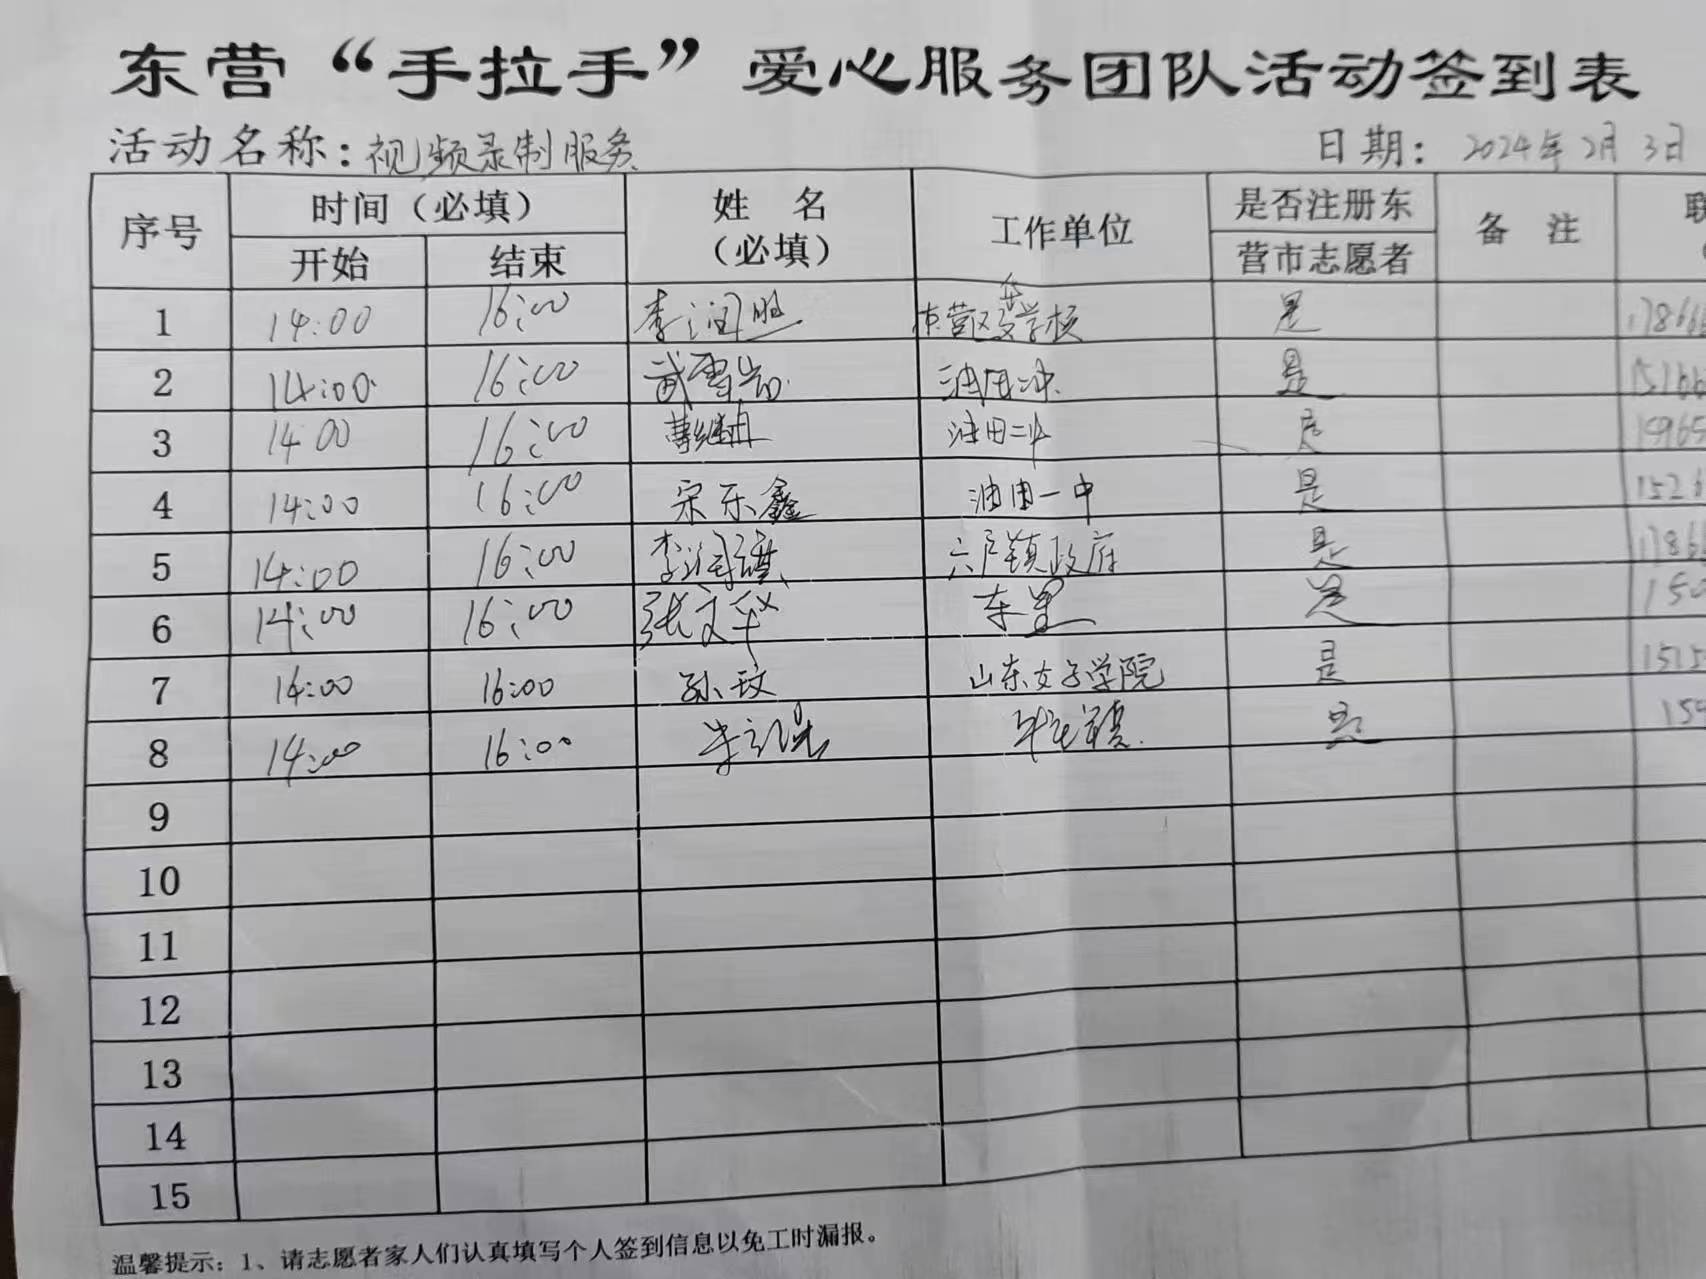 东营“手拉手”爱心服务团队活动签到表
活动名称：视频录制服务 日期：2024年2月3日
序号 时间（必填） 姓名（必填） 工作单位 是否注册东营市志愿者 备注 联
开始 结束
1 14:00 16:00 李润 东营区 学校 是 17866
2 14:00 16:00 武雪岩 油田 是 15166
3 14 00 16:00 曹继冉 油田二中 是 15965
4 14:00 16:00 宋乐鑫 油田一中 是 1526
5 14:00 16:00 李润祺 六户镇政府 是 17866
6 14:00 16:00 张文华 东里 是 150
7 14:00 16:00 孙玟 山东女子学院 是 1515
8 14:00 16:00 是 159
9
10
11
12
13
14
15
温馨提示：1、请志愿者家人们认真填写个人签到信息以免工时漏报。